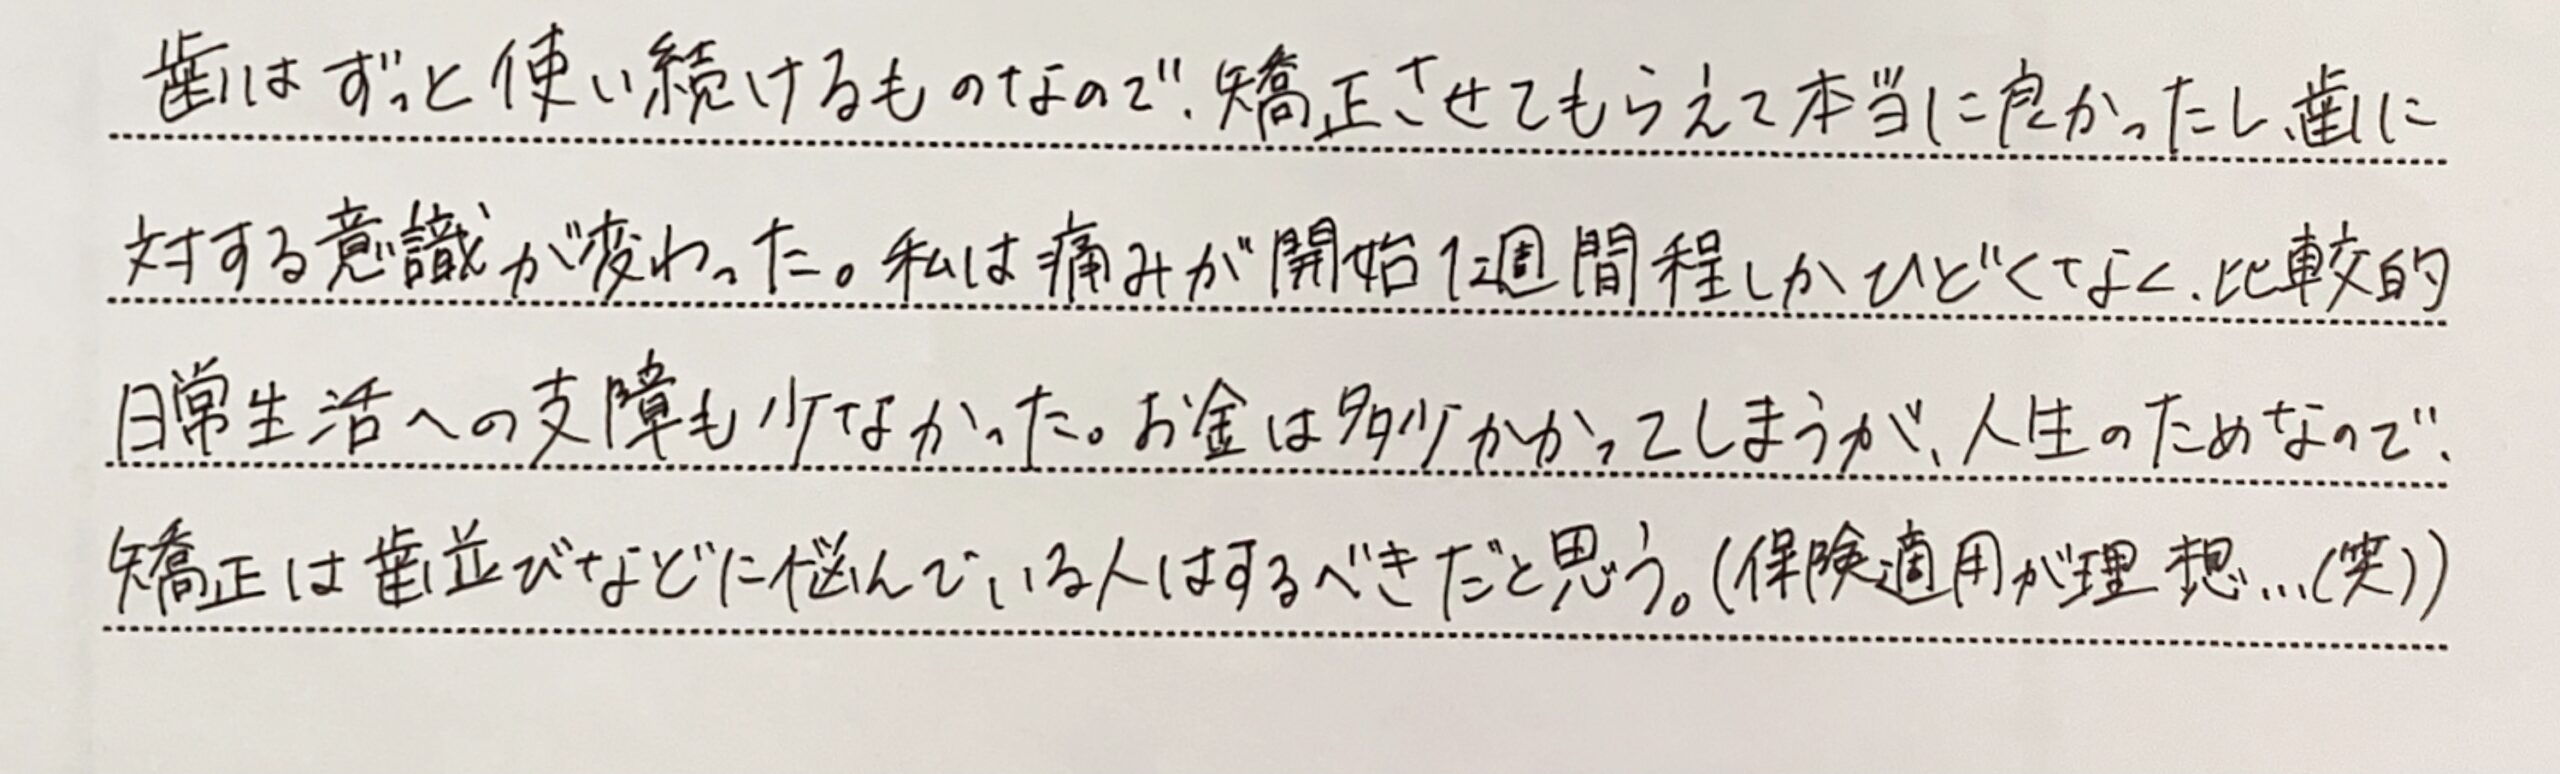 歯はずっと使い続けるものなので、矯正させてもらえて本当に良かったし、歯に
対する意識が変わった。私は痛みが開始1週間程しかひどくなく、比較的
日常生活への支障も少なかった。お金は多少かかってしまうが、人生のためなので、
矯正は歯並びなどに悩んでいる人はするべきだと思う。(保険適用が理想...(笑))